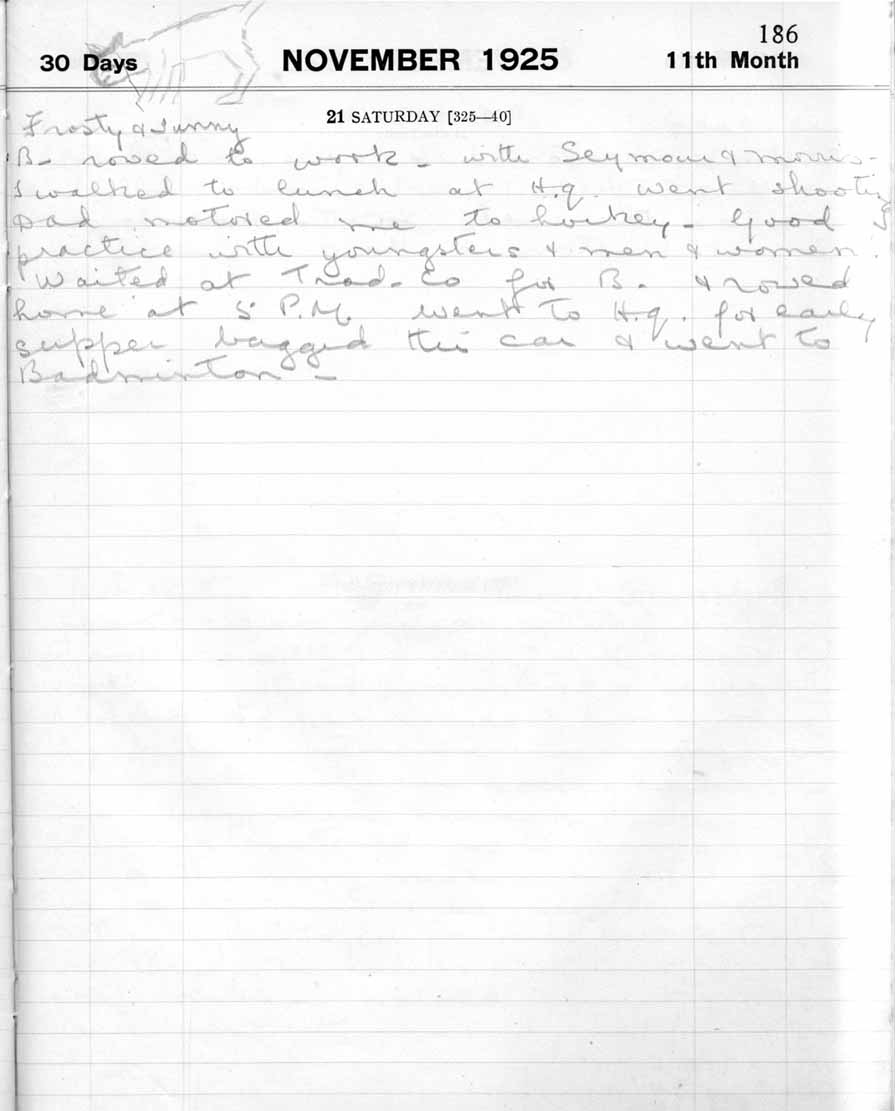 186
30 Days NOVEMBER 1925 11th Month
21 SATURDAY [325—40]
Frosty & Sunny
B- rowed to work - with Seymour & Morris -
I walked to lunch at H.q. went shooting
Dad motored me to hockey - Good
practice with youngsters & men & women.
Waited at Trad. Co for B. & rowed
home at 5 P.M. went to H.q. for early
supper bagged the car & went to
Badminton -